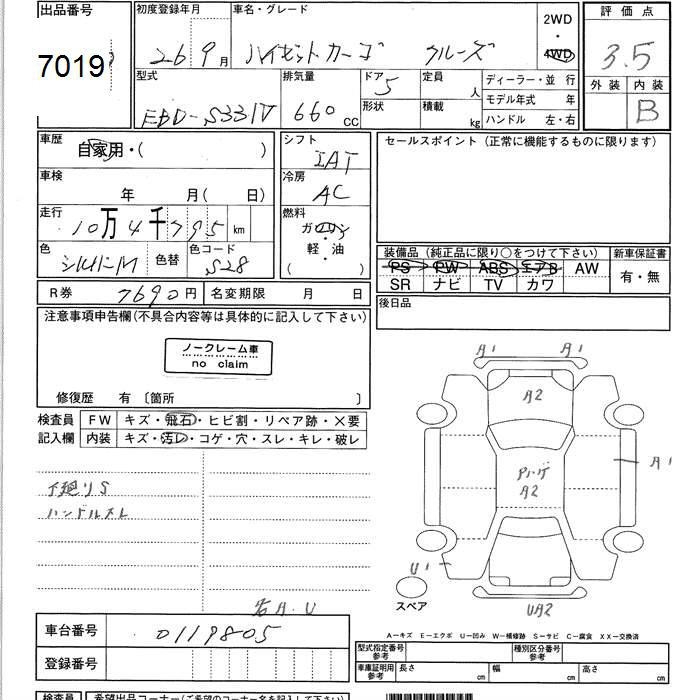 出品番号
7019
初度登録年月
26 9月
車名・グレード
ハイゼットカーゴ クルーズ
2WD
・
4WD
評価点
3.5
外装 内装
B
型式
EBD-S331V
排気量
660 CC
ドア
5
形状
定員
人
積載
kg
ディーラー・並 行
モデル年式 年
ハンドル 左・右
車歴
自家用・( )
車検
年 月( 日)
走行
10万4千795 km
色
シルバーM
色替
色コード
S28
シフト
IAT
冷房
AC
燃料
ガソリン
・
軽・油
( )
セールスポイント (正常に機能するものに限ります)
装備品 (純正品に限り○をつけて下さい)
PS PW ABS エアB AW
SR ナビ TV カワ
新車保証書
有・無
R券 7690円
名変期限 月 日
後日品
注意事項申告欄(不具合内容等は具体的に記入して下さい)
ノークレーム車
no claim
修復歴 有 〔箇所 〕
検査員
記入欄
FW キズ・飛石・ヒビ割・リペア跡・×要
内装 キズ・汚レ・コゲ・穴・スレ・キレ・破レ
下廻りS
ハンドルスレ
右A.U
A1 A1
A2
A2
A1
U1
UA2
スペア
車台番号 0119805
登録番号
A-キズ E-エクボ U-凹み W-補修跡 S-サビ C-腐食 XX-交換済
型式指定番号
参考
種別区分番号
参考
車庫証明用
参考
長さ cm 幅 cm 高さ cm
検査員
希望出品コーナー(ご希望のコーナー名を記入して下さい)